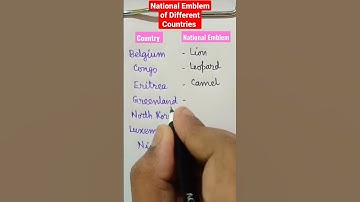 National Emblem
of Different
Countries
Country National Emblem
Belgium - Lion
Congo - Leopard
Eritrea - Camel
Greenland -
North Kor
Luxem
Ni